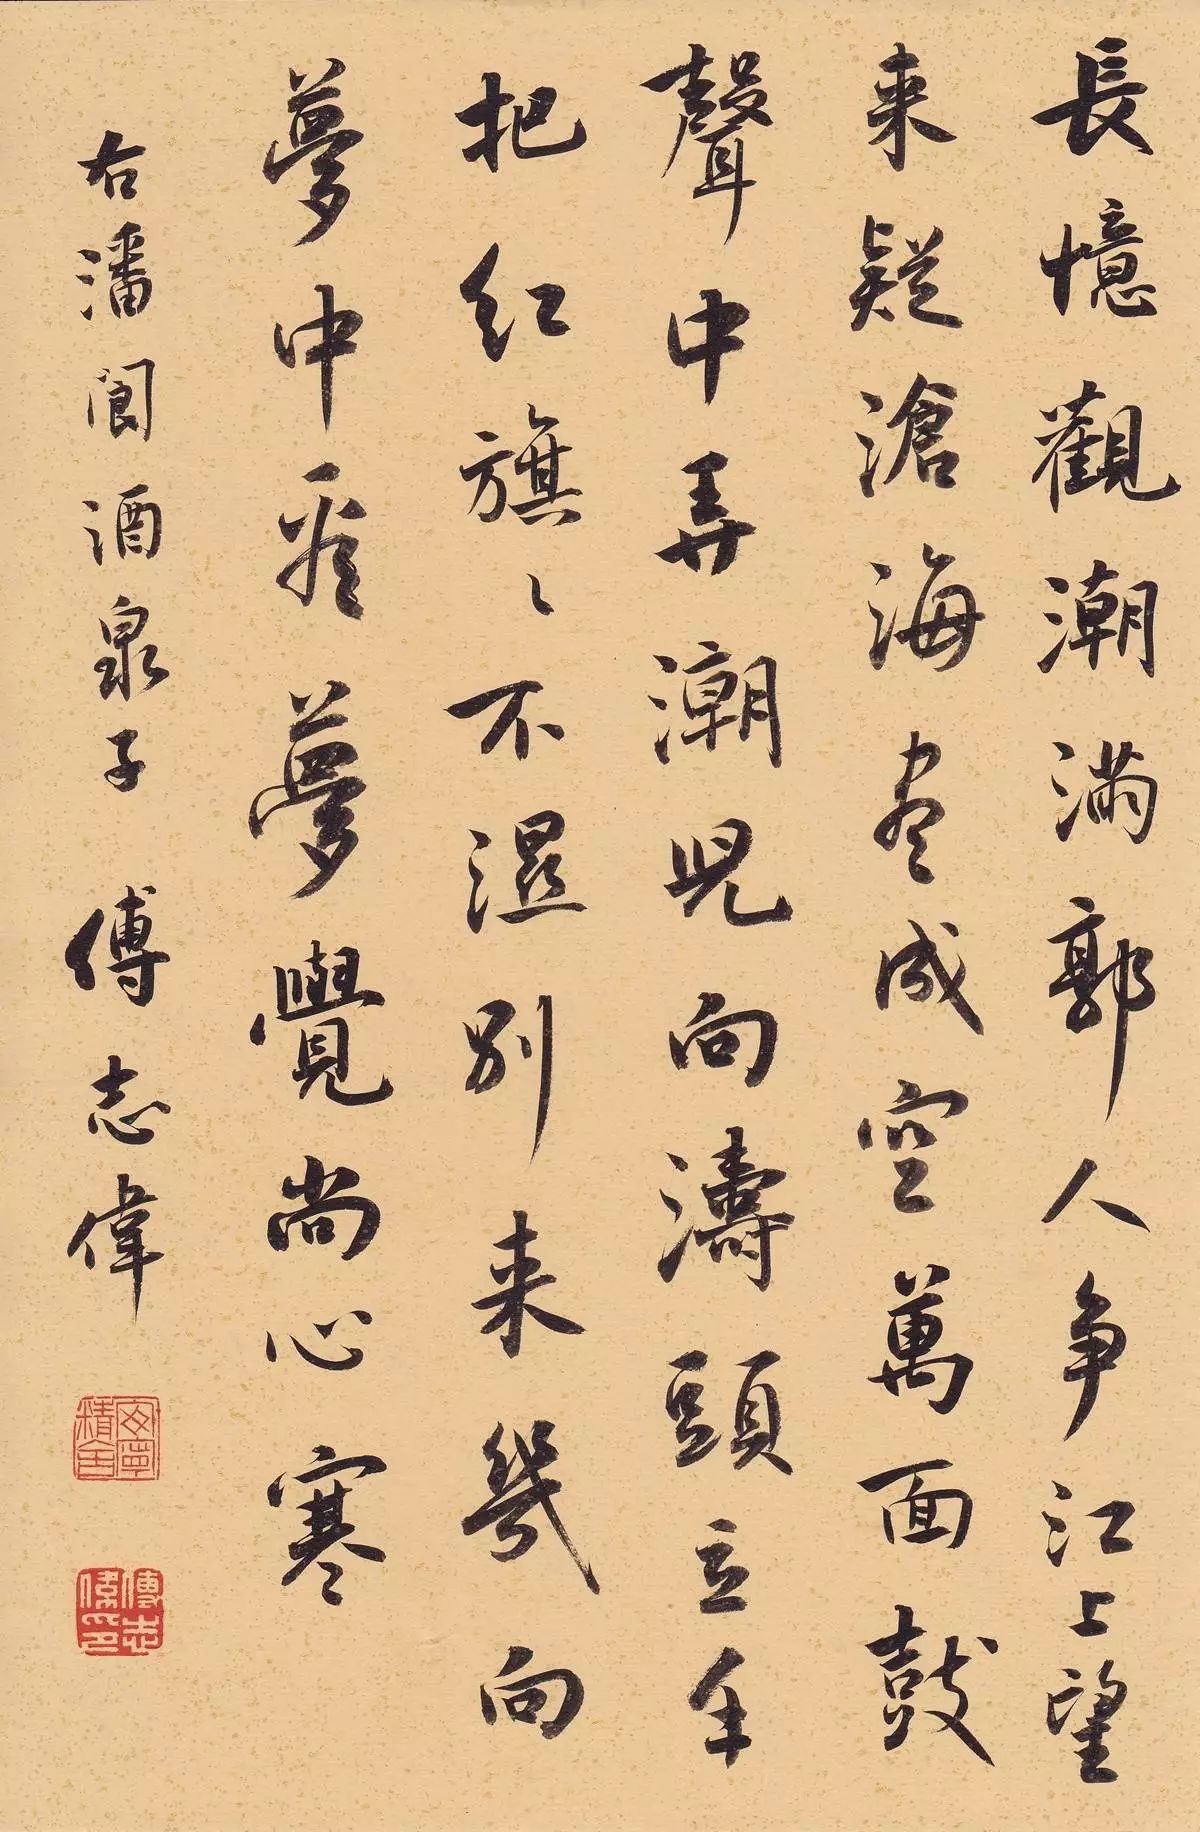 長憶觀潮滿郭人争江上望
来疑滄海盡成空萬面鼓
聲中弄潮兒向濤頭立手
把红旗〻不濕别来幾向
夢中看夢覺尚心寒
右潘閬酒泉子 傅志偉
傅志偉印